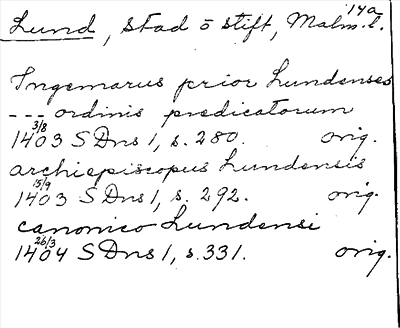 14a
Lund, stad o stift, Malm. l.
Ingemarus prior Lundenses
--- ordinis predicatorum
3/8
1403 SDns 1, s. 280. orig.
archiepiscopus Lundensis
15/9
1403 SDns 1, s. 292. orig.
canonico Lundensi
26/3
1404 SDns 1, s. 331. orig.